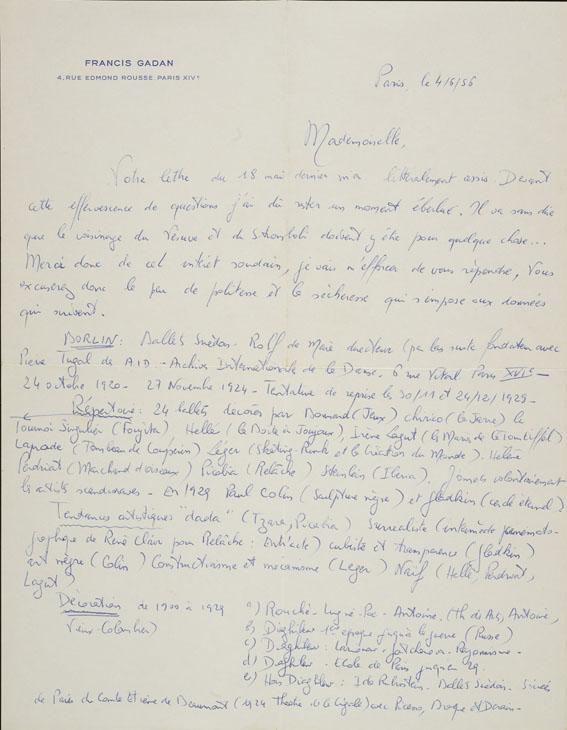 FRANCIS GADAN
4, RUE EDMOND ROUSSE. PARIS XIVe
Paris, le 4/6/56
Mademoiselle,
Votre lettre du 18 mai dernier m'a littéralement assis. Devant
cette effervescence de questions j'ai dû rester un moment éberlué. Il va sans dire
que le voisinage du Vésuve et du Stromboli doivent y être pour quelque chose...
Merci donc de cet intérêt soudain, je vais m'efforcer de vous répondre, Vous
excuserez donc le peu de politesse et la sécheresse qui s'impose aux données
qui suivent.
BORLIN : Ballets Suédois - Rolf de Maré directeur (par la suite fondateur avec
Pierre Tugal de A.I.D - Archives Internationale de la Danse. 6 rue Vital Paris XVIe -
24 octobre 1920 - 27 Novembre 1924 - Tentative de reprise le 30/11 et 24/12/1929 -
Répertoire : 24 ballets décorés par Bonnard (Jeux) chirico (la Jarre) le
Tournoi Singulier (Foujita) Hellé (la Boîte à Joujoux), Irène Lagut (les Mariés de la Tour Eiffel)
Laprade (Tombeau de Couperin) Léger (Skating-Rink et la Création du Monde). Hélène
Perdriat (Marchand d'oiseaux) Picabia (Relâche) Steinlen (Iberia). Jamais volontairement
les artistes scandinaves - En 1929 Paul Colin (Sculpture nègre) et Gladkin (cercle éternel)
Tendances artistiques "dada" (Tzara, Picabia) surréaliste (intermède cinémato-
graphique de René Clair pour Relâche : Entr'acte) cubiste et transparence (Gladkin)
art nègre (Colin) Constructivisme et mécanisme (Léger) Naïf (Hellé, Perdriat,
Lagut)
Décoration de 1900 à 1929 a) Rouché - Lugné-Poe - Antoine. (Th des Arts, Antoine,
Vieux-Colombier)
b) Diaghilew 1e époque jusqu'à la guerre (Russe)
c) Diaghilew : Larionow - Gontcharova - Rayonnisme -
d) Diaghilew - Ecole de Paris jusqu'en 29.
e) Hors Diaghilew : Ida Rubinstein - Ballets Suédois - Soirées
de Paris du Comte Etienne de Beaumont (1924 Théâtre de la Cigale) avec Picasso, Braque et Derain -